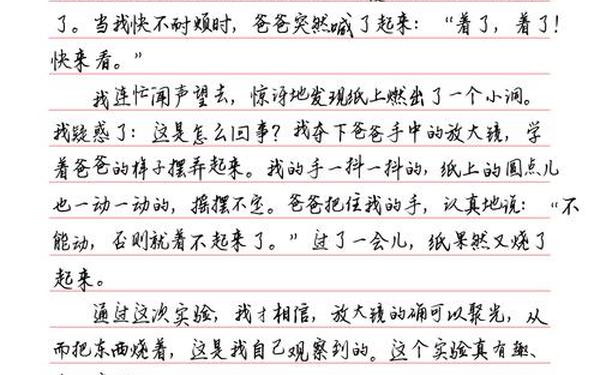 了。当我快不耐烦时，爸爸突然喊了起来：“着了，着了！
快来看。”
我连忙闻声望去，惊讶地发现纸上燃出了一个小洞。
我疑惑了：这是怎么回事？我夺下爸爸手中的放大镜，学
着爸爸的样子摆弄起来。我的手一抖一抖的，纸上的圆点儿
也一动一动的，摇摆不定。爸爸把住我的手，认真地说：“不
能动，否则就着不起来了。”过了一会儿，纸果然又烧了
起来。
通过这次实验，我才相信，放大镜的确可以聚光，从
而把东西烧着，这是我自己观察到的。这个实验真有趣、